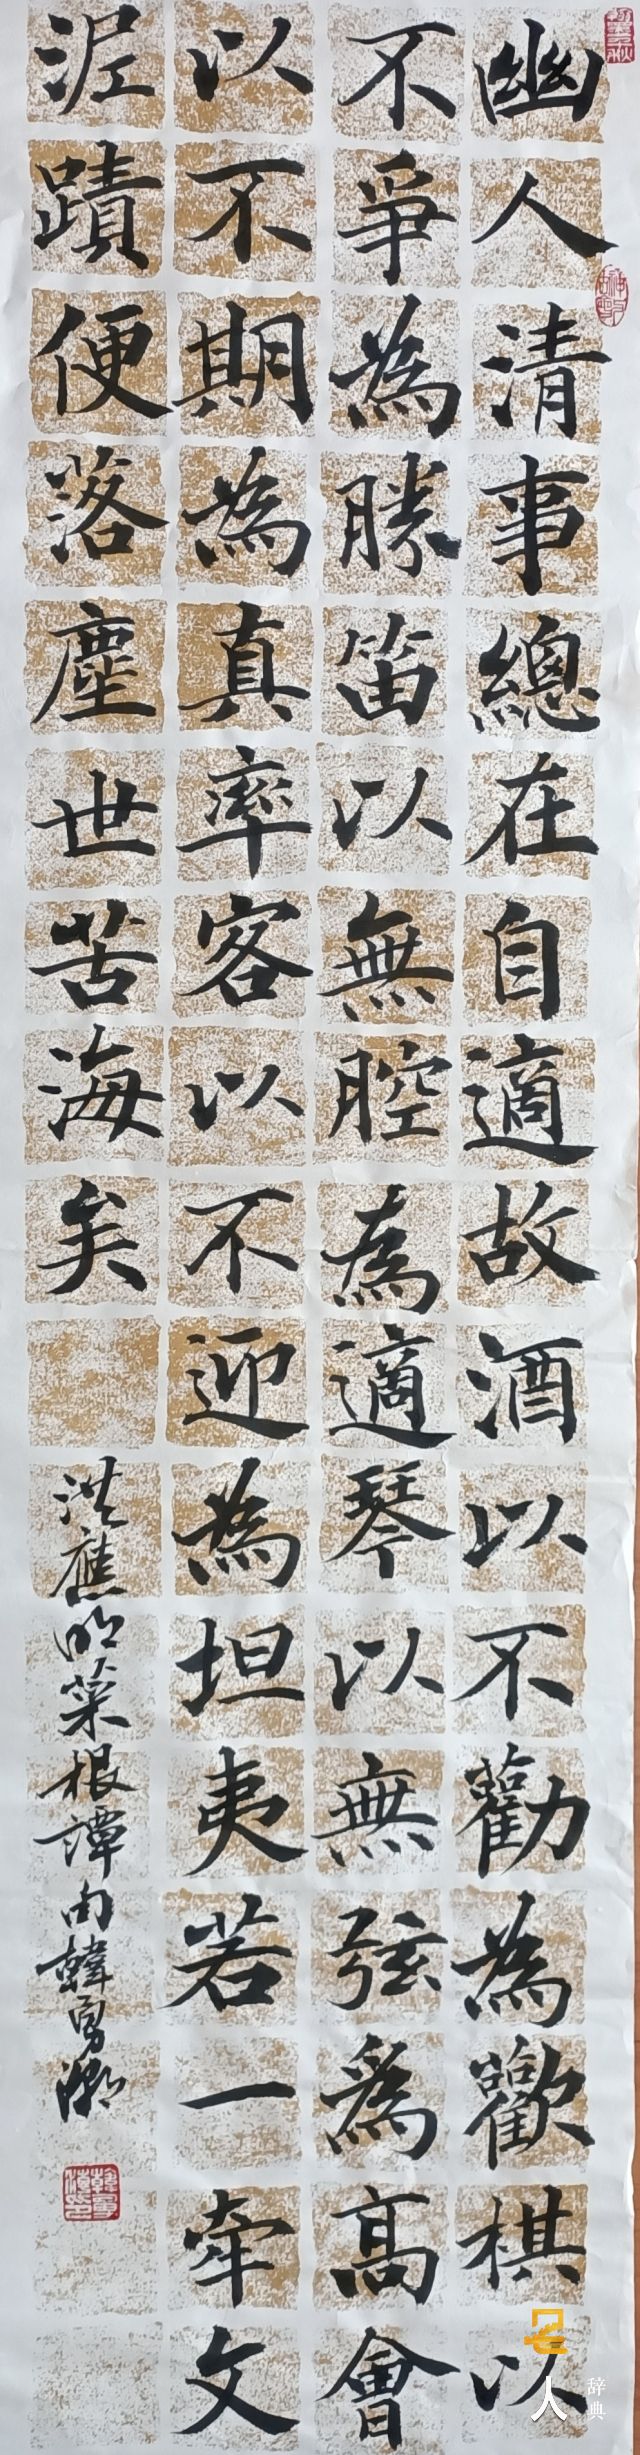 幽人清事總在自適故酒以不勸為歡棋以
不爭為勝笛以無腔為適琴以無弦為高會
以不期為真率客以不迎為坦夷若一牽文
泥蹟便落塵世苦海矣
洪應明菜根譚句韓勇
名人辞典